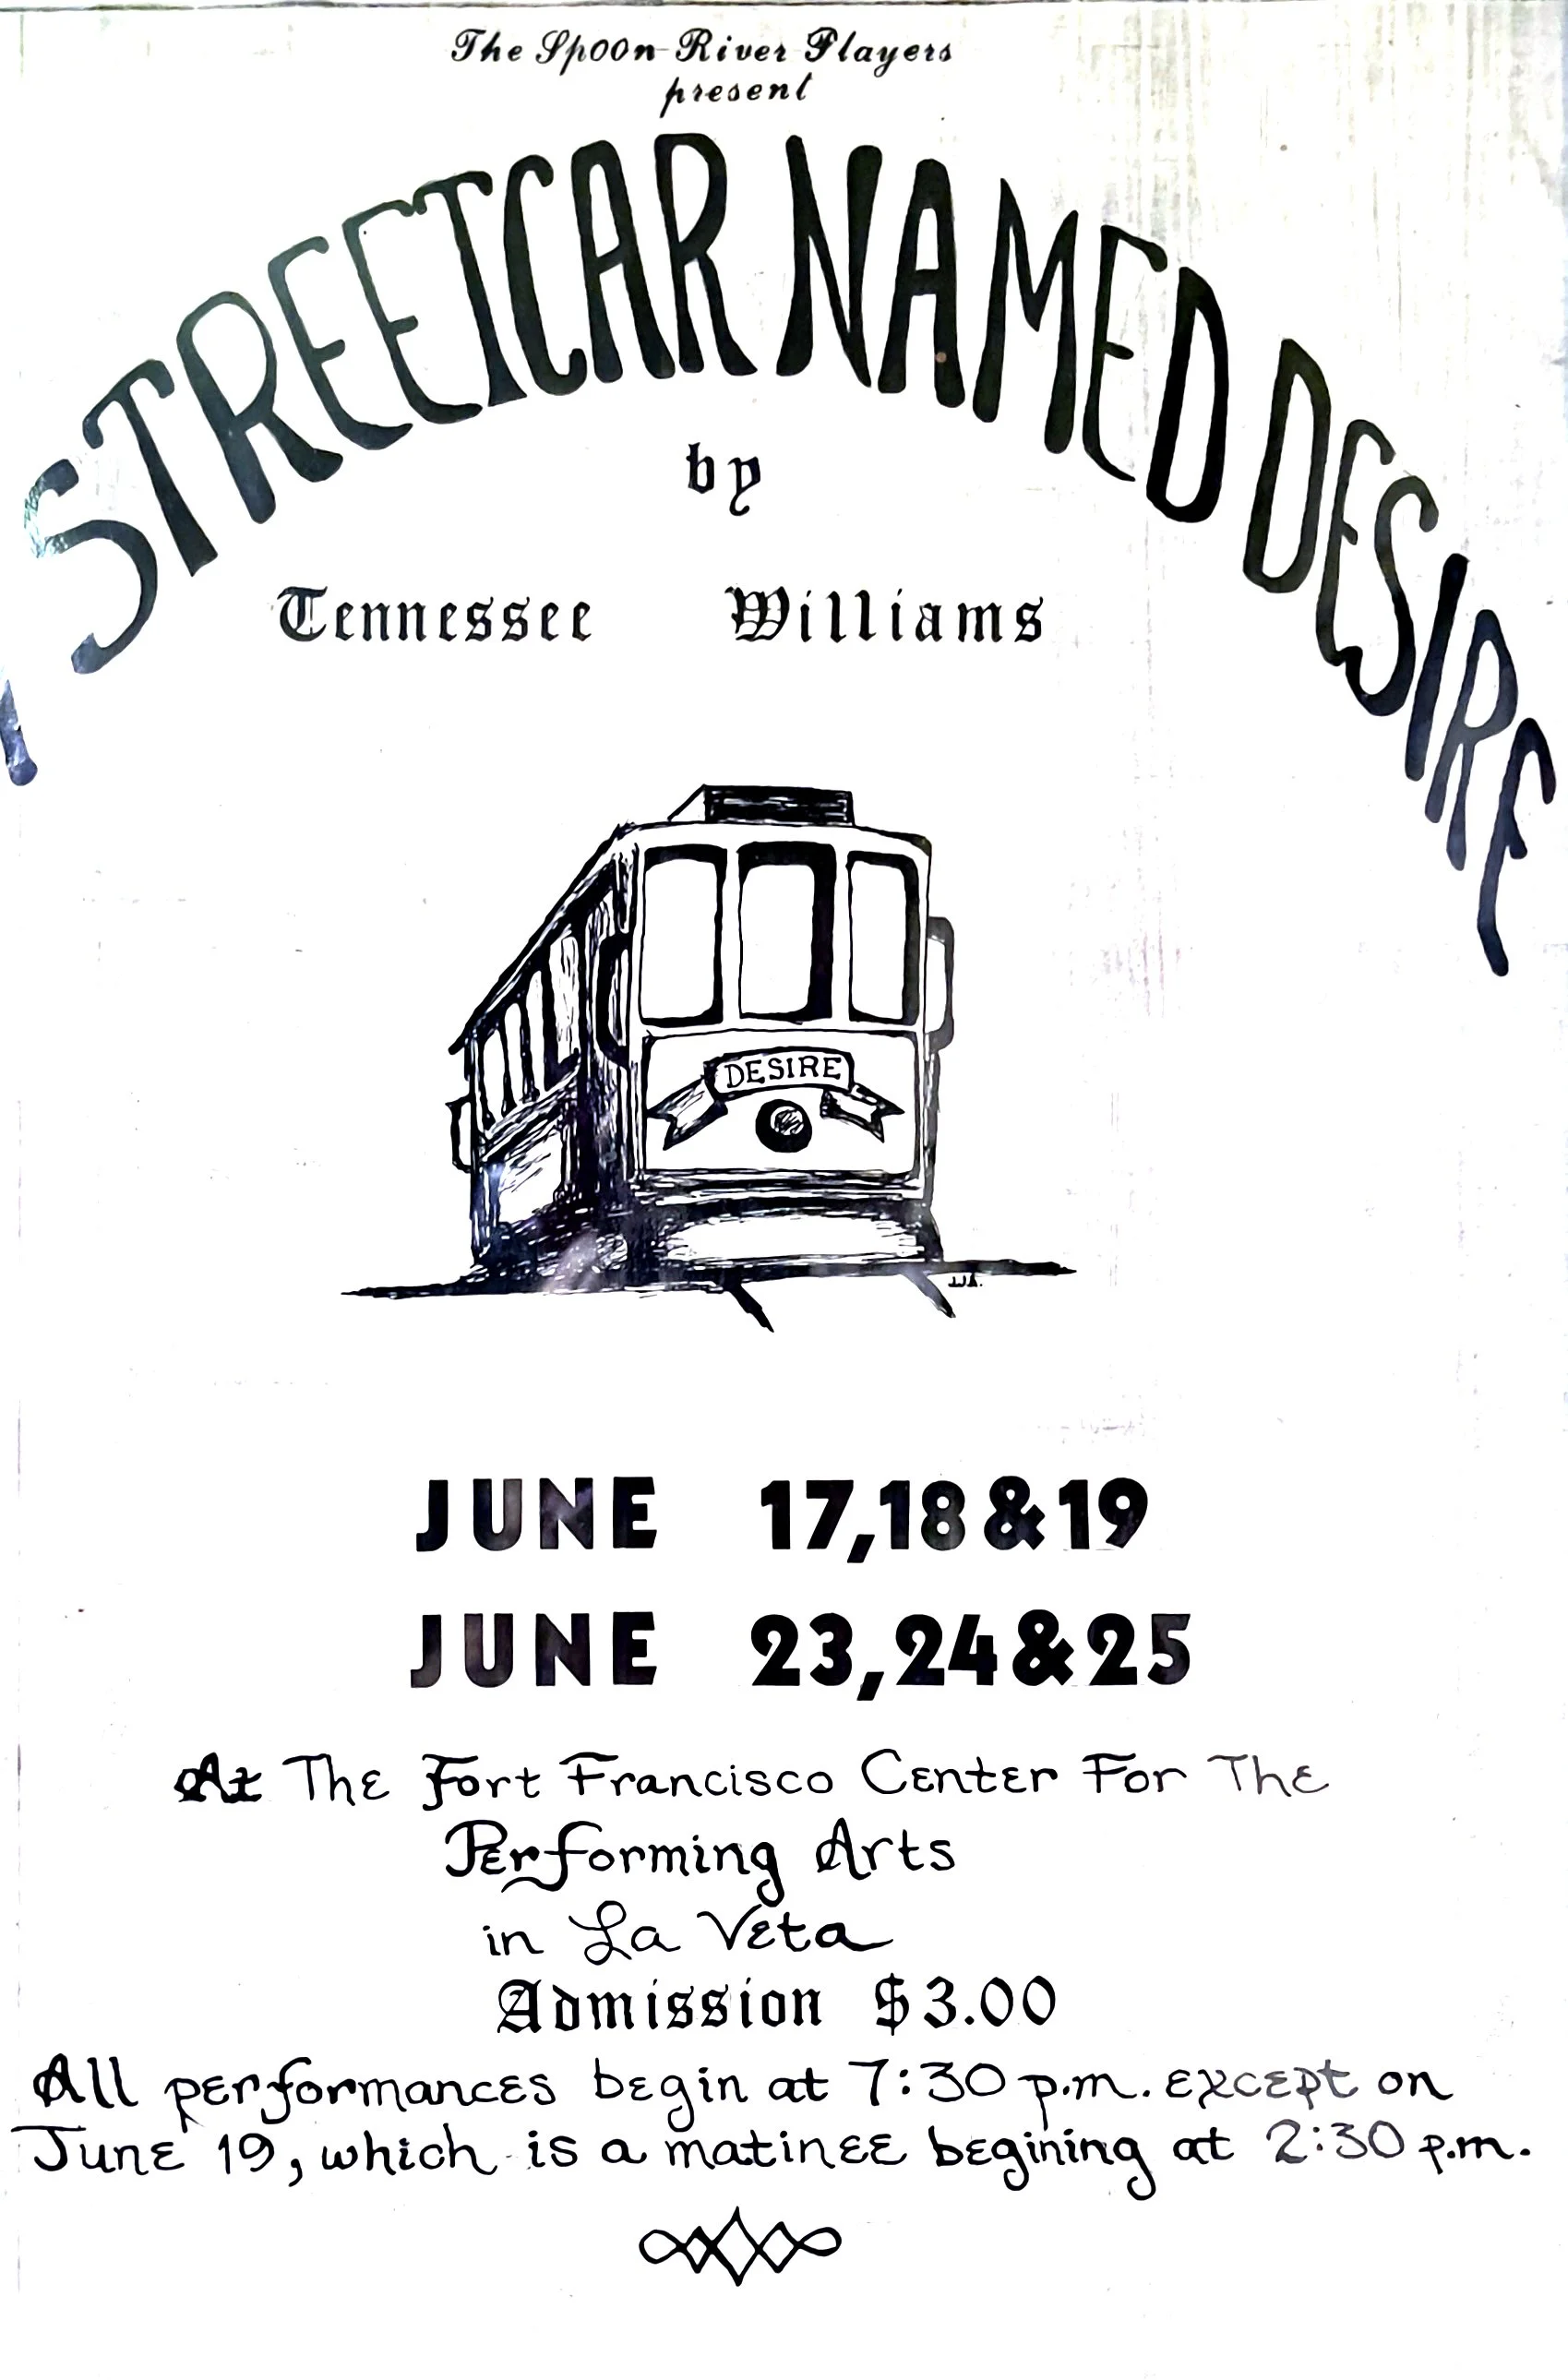 The Spoon River Players
present
STREETCAR NAMED DESIRE
by
Tennessee Williams
DESIRE
JUNE 17,18&19
JUNE 23,24&25
At The Fort Francisco Center For The
Performing Arts
in La Veta
Admission $3.00
All performances begin at 7:30 p.m. except on
June 19, which is a matinee begining at 2:30 p.m.